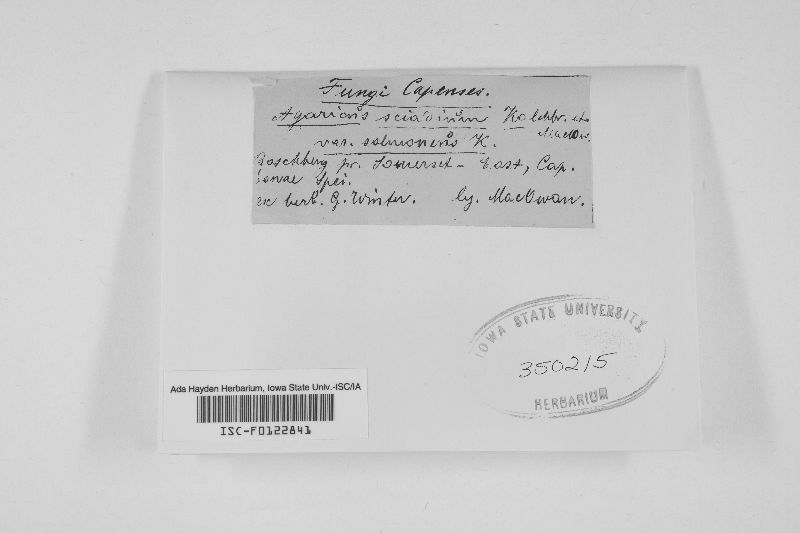 Fungi Capenses.
Agaricus sciadinum Kalchbr. et
MacOw.
var. salmoneus K.
Boschberg pr. Somerset - East, Cap.
bonae Spei.
ex herb. G. Winter. lg. MacOwan.
IOWA STATE UNIVERSITY
350215
HERBARIUM
Ada Hayden Herbarium, Iowa State Univ.-ISC/IA
ISC-F0122841